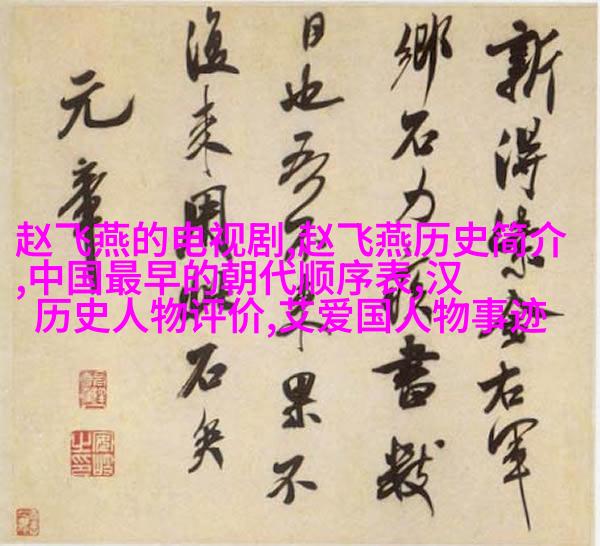 赵飞燕的电视剧,赵飞燕历史简介
,中国最早的朝代顺序表,汉
历史人物评价,艾爱国人物事迹
新得紫金右軍
鄉石力疾書數
日也吾不来果不
復来用此石矣
元章